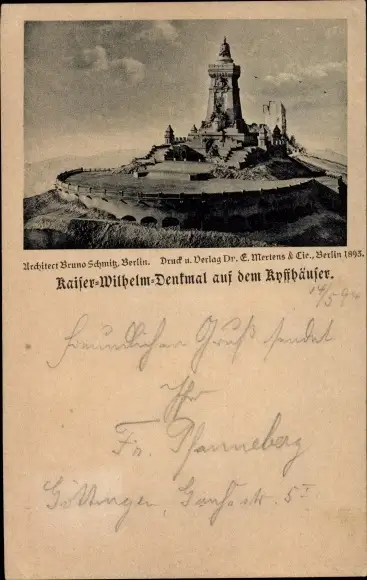 Architect Bruno Schmitz, Berlin. Druck u. Verlag Dr. E. Mertens & Cie., Berlin 1893.
Kaiser-Wilhelm-Denkmal auf dem Kyffhäuser.
14/5 94
Freundlichen Gruß sendet
Ihr
Fr. Pfanneberg
Göttingen, str. 5I